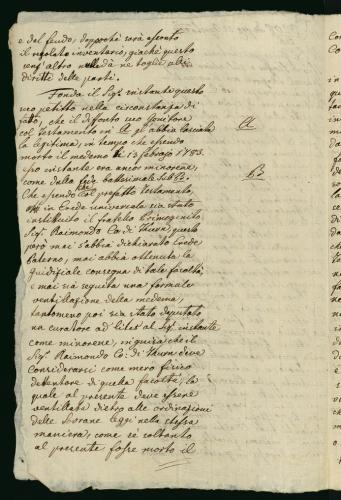 e del feudo, dopoché sarà esposto
il regolato inventario, giaché questo
com'altro nulla dà ne toglie alli
diritti delle parti.
Fonda il Sigr. instante questo
suo petitto nella circonstanza di
fatto, che il difonto suo Genitore
col testamento in A gl'abbia lasciata
A
la legitima, in tempo che essendo
morto il medemo li 13 febraro 1783.
esso instante era ancor minorene,
come dalla fede battesimale sub B.
B.
Che essendo col prefatto Testamento,
in Erede universale sia stato
instituito il fratello Primogenito
Sigr. Raimondo Co: di Thurn, questo
però mai s'abbia dichiarato Erede
Paterno, mai abbia ottenuta la
giudiziale consegna di tale facoltà,
e mai sia seguita una formale
ventillazione della medema,
tantomeno poi sia stato deputato
un curatore ad lites al Sigr. instante
come minorene, in guisa che il
Sigr. Raimondo Co: di Thurn deve
considerarsi come mero fisico
detentore di quella facoltà, la
quale al presente deve essere
ventillata dietro alle ordinazioni
delle Sovrane leggi nella stessa
maniera, come se soltanto
al presente fosse morto il